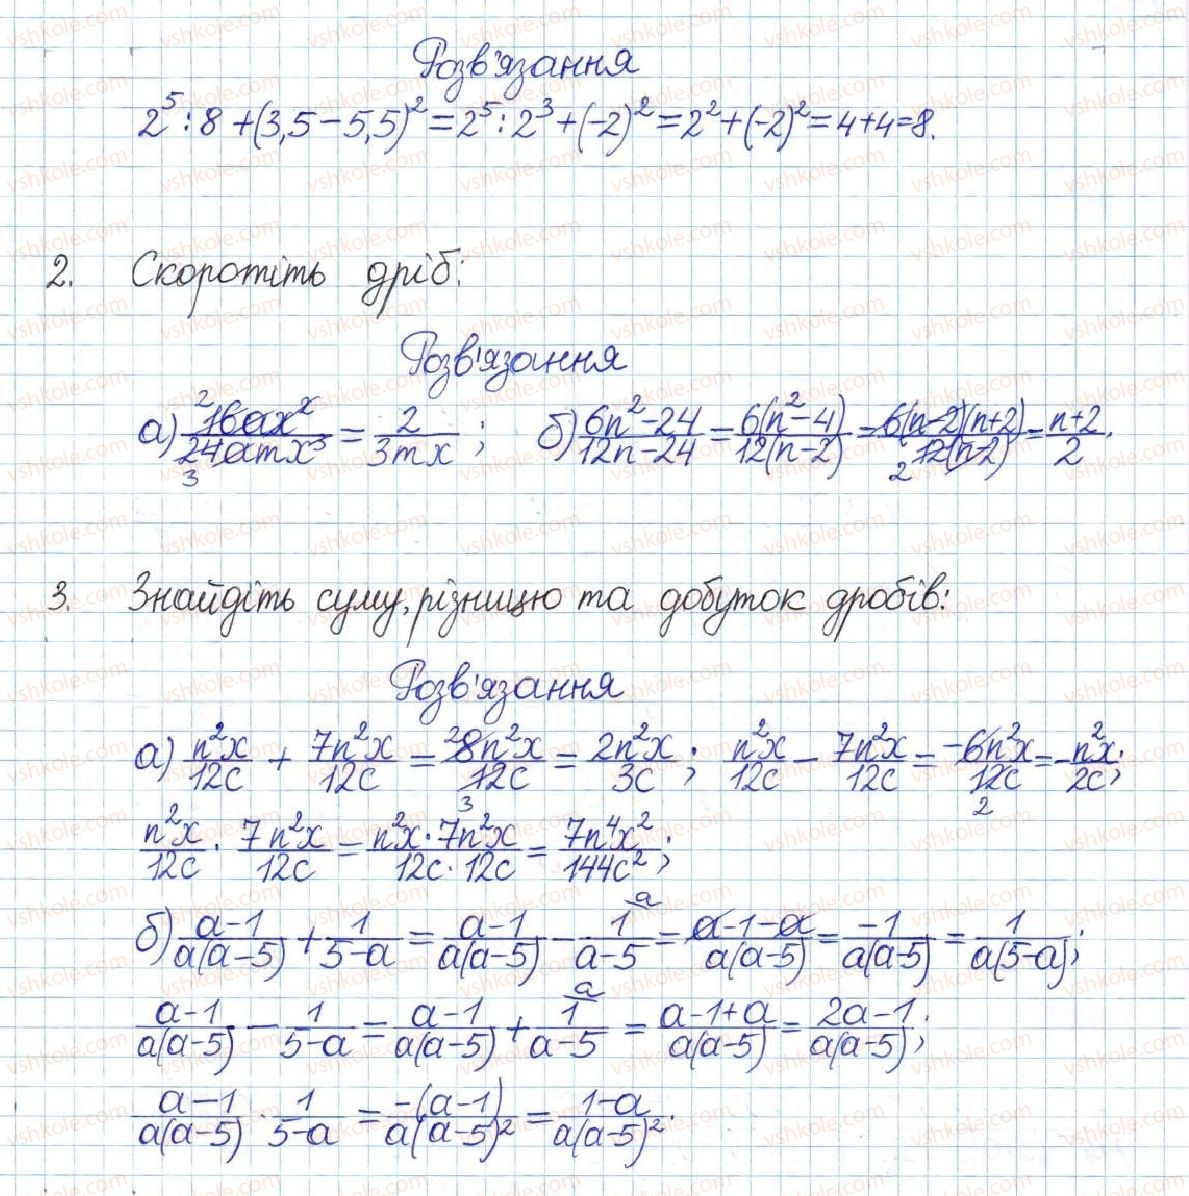 Розв'язання
2⁵ : 8 + (3,5 − 5,5)² = 2⁵ : 2³ + (−2)² = 2² + (−2)² = 4 + 4 = 8.
2. Скоротіть дріб:
Розв'язання
а) 16ax²/24amx³ = 2/3mx ; б) (6n² − 24)/(12n − 24) = 6(n² − 4)/12(n − 2) = 6(n − 2)(n + 2)/12(n − 2) = (n + 2)/2.
3. Знайдіть суму, різницю та добуток дробів:
Розв'язання
а) n²x/12c + 7n²x/12c = 8n²x/12c = 2n²x/3c ; n²x/12c − 7n²x/12c = −6n²x/12c = −n²x/2c ;
n²x/12c · 7n²x/12c = n²x · 7n²x/12c · 12c = 7n⁴x²/144c² ;
б) (a − 1)/a(a − 5) + 1/(5 − a) = (a − 1)/a(a − 5) − 1/(a − 5) = (a − 1 − a)/a(a − 5) = −1/a(a − 5) = 1/a(5 − a) ;
(a − 1)/a(a − 5) − 1/(5 − a) = (a − 1)/a(a − 5) + 1/(a − 5) = (a − 1 + a)/a(a − 5) = (2a − 1)/a(a − 5) ;
(a − 1)/a(a − 5) · 1/(5 − a) = −(a − 1)/a(a − 5)² = (1 − a)/a(a − 5)².